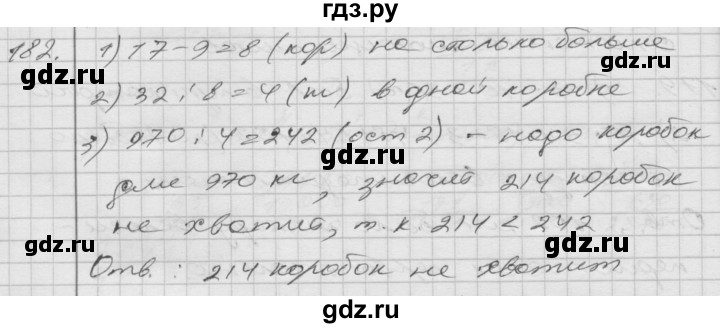 гдз.ру
182. 1) 17-9=8 (кор) на столько больше
2) 32:8=4 (т) в одной коробке
3) 970:4=242 (ост 2) - надо коробок
для 970 кг, значит 214 коробок
не хватит, т.к. 214 < 242
Отв.: 214 коробок не хватит
gdz.ru
gdz.ru
gdz.ru
gdz.ru
gdz.ru
gdz.ru
gdz.ru